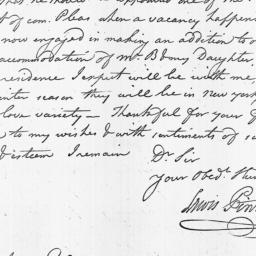 of com. Pleas when a vacancy happen
now engaged in making an addition to
accommodation of Mr. B & my Daughter.
residence I expect will be with me
inter season they will be in new york
love variety — Thankful for your
to my wishes & with sentiments of
& isteem I remain Dr Sir
your Obedt.
Lewis